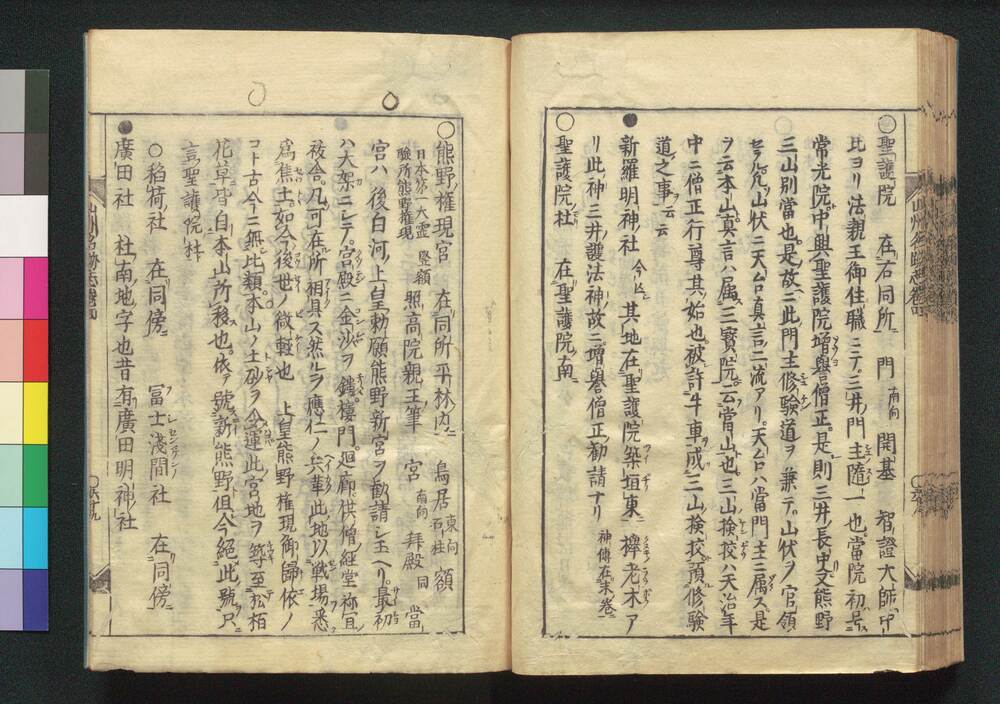 ○聖護院 在右同所 門 南向 開基 智證大師中
比ヨリ法親王御住職ニテ三井門主隨一也當院初号
常光院中興聖護院増譽僧正是則三井長吏熊野
三山別當也是故ニ此門主修験道ヲ兼テ山伏ノ官領
セラル凡山伏ニ天台真言二流アリ天台ハ當門主ニ属ス是
ヲ云本山真言ハ属三寳院云當山也三山検校ハ天治年
中ニ僧正行尊其始也被許牛車成三山検校預修験
道之事云云
●新羅明神社 今ハ亡 其地在聖護院築垣東欅老木ア
リ此神三井護法神故ニ増譽僧正勧請ナリ 神傳在末巻
○聖護院社 在聖護院南
○熊野権現宮 在同所平林内 鳥居 東向石柱 額
日本第一大霊
驗所熊野権現 竪額 照高院親王筆 宮 南向 拝殿 同 當
宮ハ後白河上皇勅願熊野新宮ヲ勧請シ玉ヘリ最初
ハ大架ニシテ宮殿ニ金沙ヲ鏤樓門廻廊供僧経堂祢宜
祓舎凡可在所相具ス然ルヲ應仁ノ兵革此地以戦場悉
為焦土如今後世ノ微軽也 上皇熊野権現御歸依ノ
コト古今ニ無比類本山ノ土砂ヲ令運此宮地ヲ等至松柏
花草皆自本山所移也依テ號新熊野但今絶此號只
言聖護院社
○稲荷社 在同傍 冨士淺間社 在同傍
●廣田社 社南地字也昔有廣田明神社